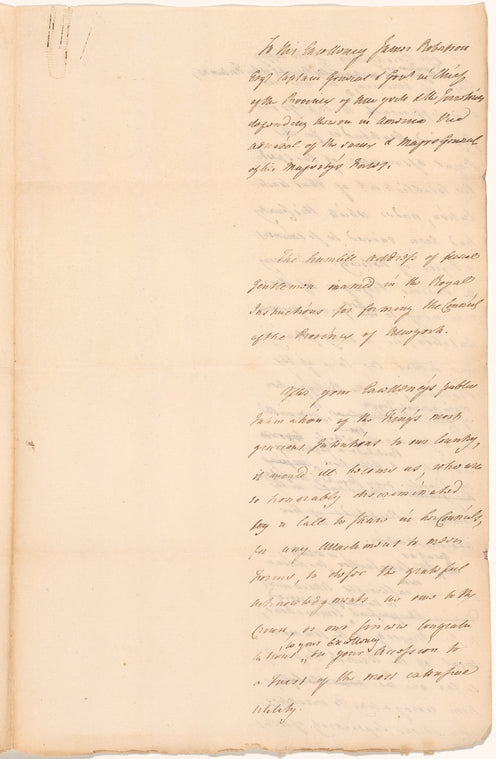 To His Excellency James Robertson
Esqr Captain General & Govr in Chief
of the Province of New York & the Territories
depending thereon in America Vice
Admiral of the same & Major General
of his Majesty's Forces.
The humble address of several
Gentlemen named in the Royal
Instructions for forming the Council
of the Province of New York.
After your Excellency's publick
Intimation of the King's most
gracious Intentions to our Country,
it would ill become us, who are
so honorably discriminated
by a call to share in her Councils,
for any Attachment to mere
Forms, to defer the grateful
acknowledgments we owe to the
Crown, or our sincere Congratu
to your Excellency
lations, on your Accession to
a trust of the most extensive
utility.